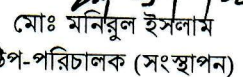 মোঃ মনিরুল ইসলাম
উপ-পরিচালক (সংস্থাপন)